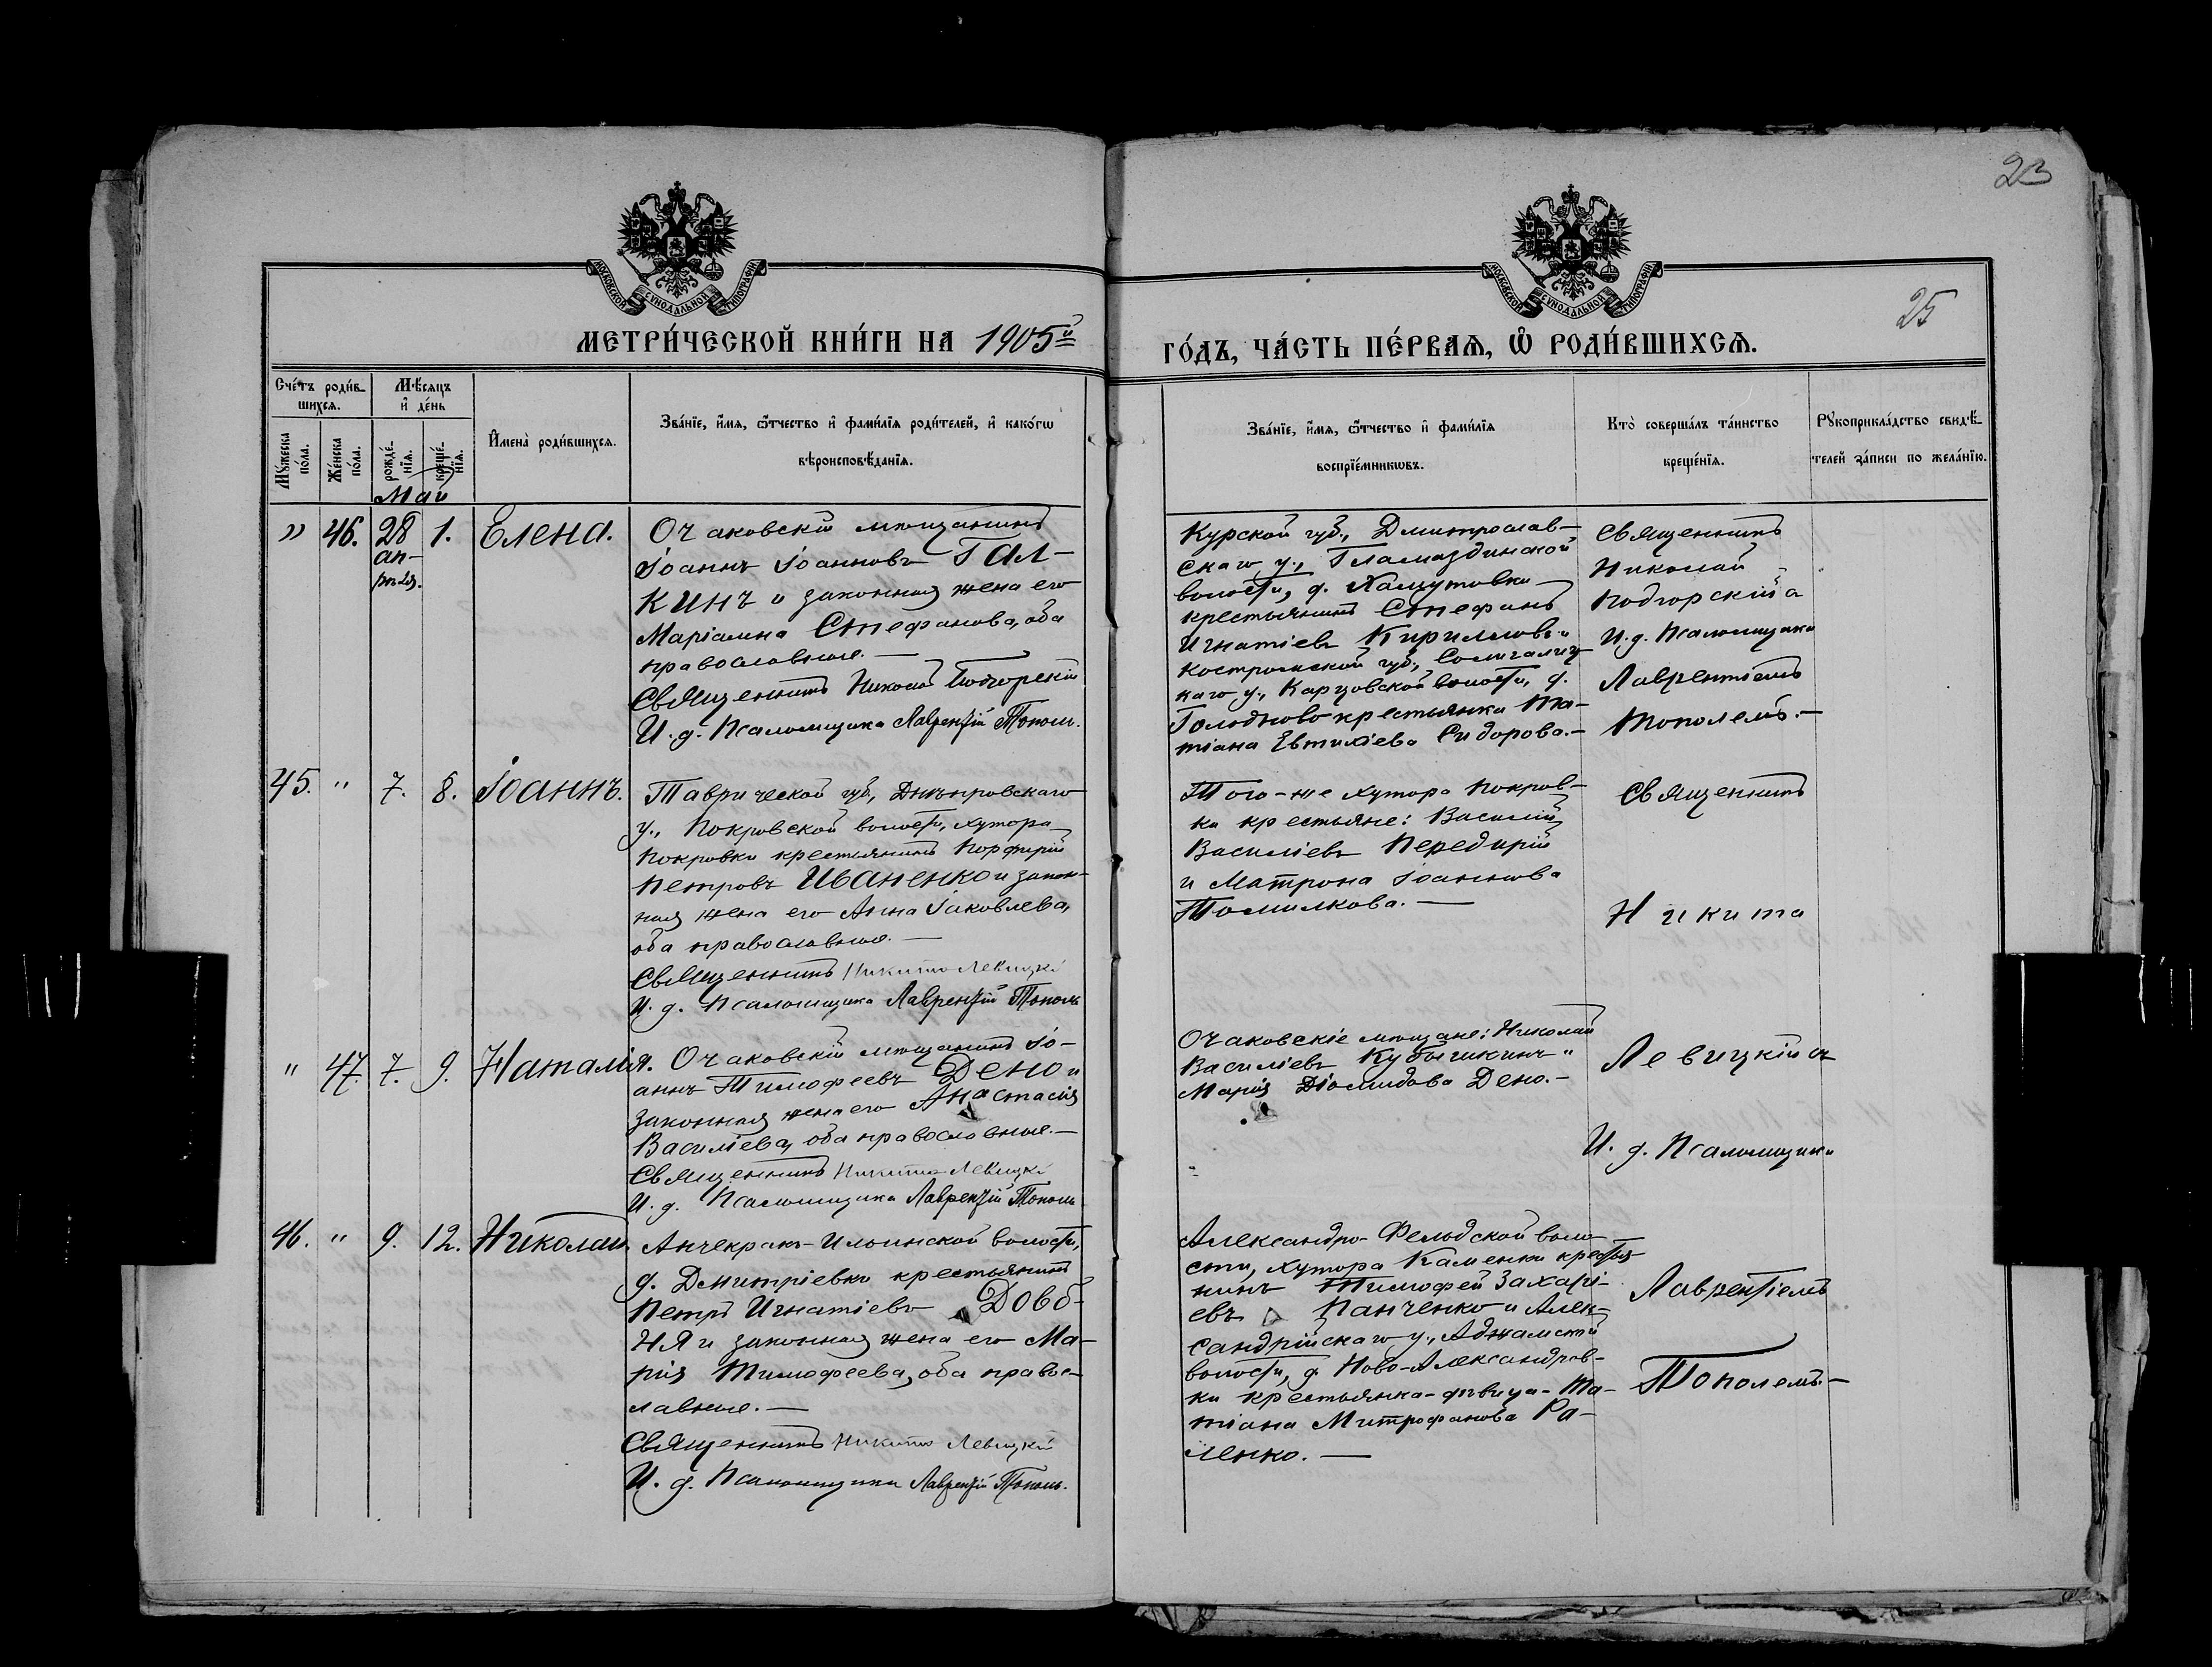 23
25
МОСКОВСКОЙ СѴНОДАЛЬНОЙ ТИПОГРАФІИ
МОСКОВСКОЙ СѴНОДАЛЬНОЙ ТИПОГРАФІИ
МЕТРИ́ЧЕСКОЙ КНИ́ГИ НА 1905й
ГО́ДЪ, ЧА́СТЬ ПЕ́РВАѦ, Ѡ҆ РОДИ́ВШИХСѦ.
Сче́тъ роди́в-
шихсѧ.
Мѣ́сѧцъ
и҆ де́нь
Мꙋ́жеска по́ла.
Же́нска по́ла.
рожде́-
нїѧ.
креще́-
нїѧ.
Май
И҆мена̀ роди́вшихсѧ.
Зва́нїе, и҆́мѧ, ѻ҆́тчество и҆ фами́лїѧ роди́телей, и҆ како́гѡ
вѣроисповѣ́данїѧ.
Зва́нїе, и҆́мѧ, ѻ҆́тчество и҆ фами́лїѧ
воспрїе́мникѡвъ.
Кто̀ соверша́лъ та́инство
креще́нїѧ.
Рꙋкоприкла́дство свидѣ́-
телей за́писи по жела́нїю.
" 46. 28 1. Елена.
ап-
рѣля.
Очаковскій мѣщанинъ
Іоаннъ Іоанновъ Гал-
кинъ и законная жена его
Маріамна Стефанова, оба
православные.—
Священникъ Николай Подгорскій
И. д. Псаломщика Лаврентій Тополь.
Курской губ., Дмитрослав-
скаго у., Гламаздинской
волости, д. Хамутовки
крестьянинъ Стефанъ
Игнатіевъ Кирилловъ и
Костромской губ., Солигалиц-
каго у., Карцовской волости, д.
крестьянка Та-
тіана Евтихіева Сидорова.—
Священникъ
Николай
Подгорскій а
И. д. Псаломщика
Лаврентіемъ
Тополемъ.—
45. " 7. 8. Іоаннъ.
Таврической губ., Днѣпровскаго
у., Покровской волости, хутора
Покровки крестьянинъ Порфирій
Петровъ Иваненко и закон-
ная жена его Анна Іаковлева,
оба православные.—
Священникъ Никита Левицкій
И. д. Псаломщика Лаврентій Тополь
Того-же хутора Покров-
ки крестьяне: Василій
Василіевъ Передирій
и Матрона Іоаннова
Томилкова.—
Священникъ
Никита
" 47. 7. 9. Наталія.
Очаковскій мѣщанинъ Іо-
аннъ Тимофеевъ Дено и
законная жена его Анастасія
Василіева, оба православные.—
Священникъ Никита Левицкій
И. д. Псаломщика Лаврентій Тополь
Очаковскіе мѣщане: Николай
Василіевъ Кубышкинъ и
Марія Діомидова Дено.—
Левицкій съ
И. д. Псаломщика
46. " 9. 12. Николай
Анчекрак-Ильинской волости,
д. Дмитріевки крестьянинъ
Петръ Игнатіевъ Довб-
ня и законная жена его Ма-
рія Тимофеева, оба правос-
лавные.—
Священникъ Никита Левицкій
И. д. Псаломщика Лаврентій Тополь.
Александро-Фельдской воло-
сти, хутора Каменки крестья-
нинъ Тимофей Захарі-
евъ Панченко и Алек-
сандрійскаго у., Аджамской
волости, д. Ново-Александров-
ки крестьянка-дѣвица-Та-
тіана Митрофанова Ра-
ленко.—
Лаврентіемъ
Тополемъ.—